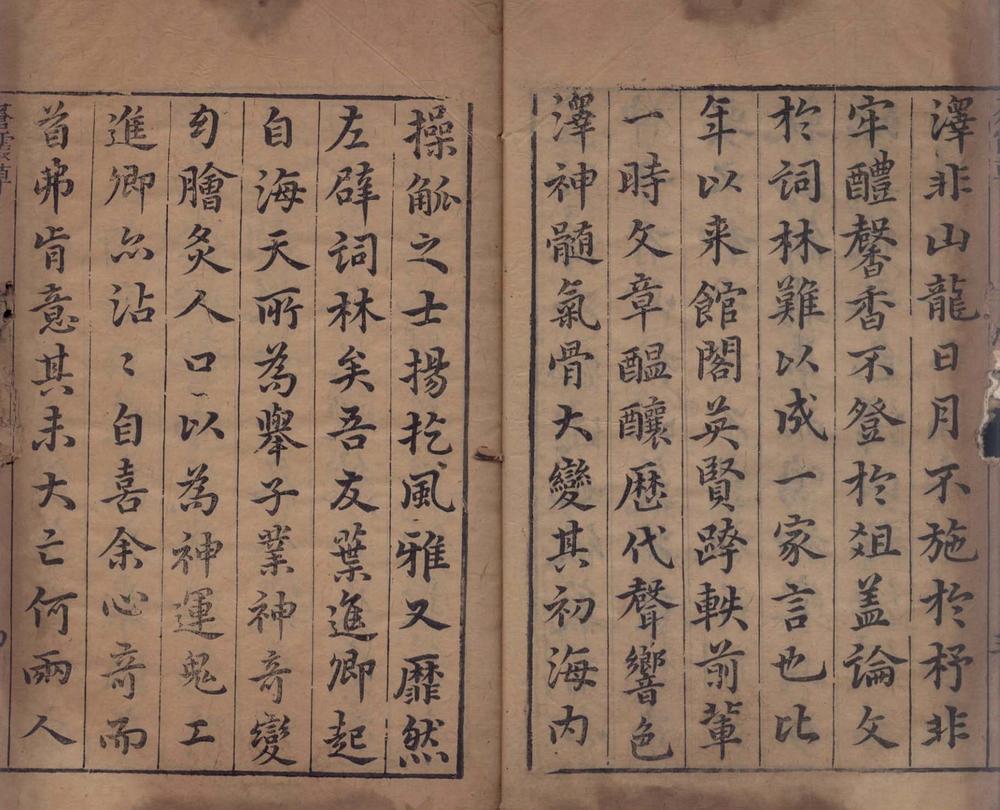 澤非山龍日月不施於杼非
牢醴馨香不登於俎蓋論文
於詞林難以成一家言也比
年以来館閣英賢跨軼前輩
一時文章醞釀歷代聲響色
澤神髓氣骨大變其初海内
操觚之士揚扢風雅又靡然
左辟詞林矣吾友葉進卿起
自海天所為舉子業神奇變
匀膾炙人口以為神運鬼工
進卿亦沾〻自喜余心奇而
首弗肯意其未大亡何兩人